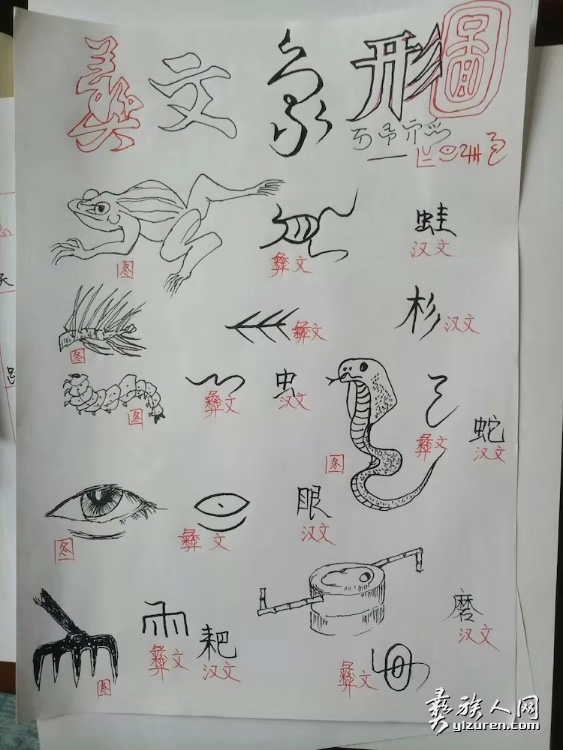 彝文象形圖
图 彝文 蛙 汉文
图 彝文 杉 汉文
图 彝文 虫 汉文
图 彝文 蛇 汉文
图 彝文 眼 汉文
图 彝文 耙 汉文
彝文 磨 汉文
彝族人网
yizuren.com